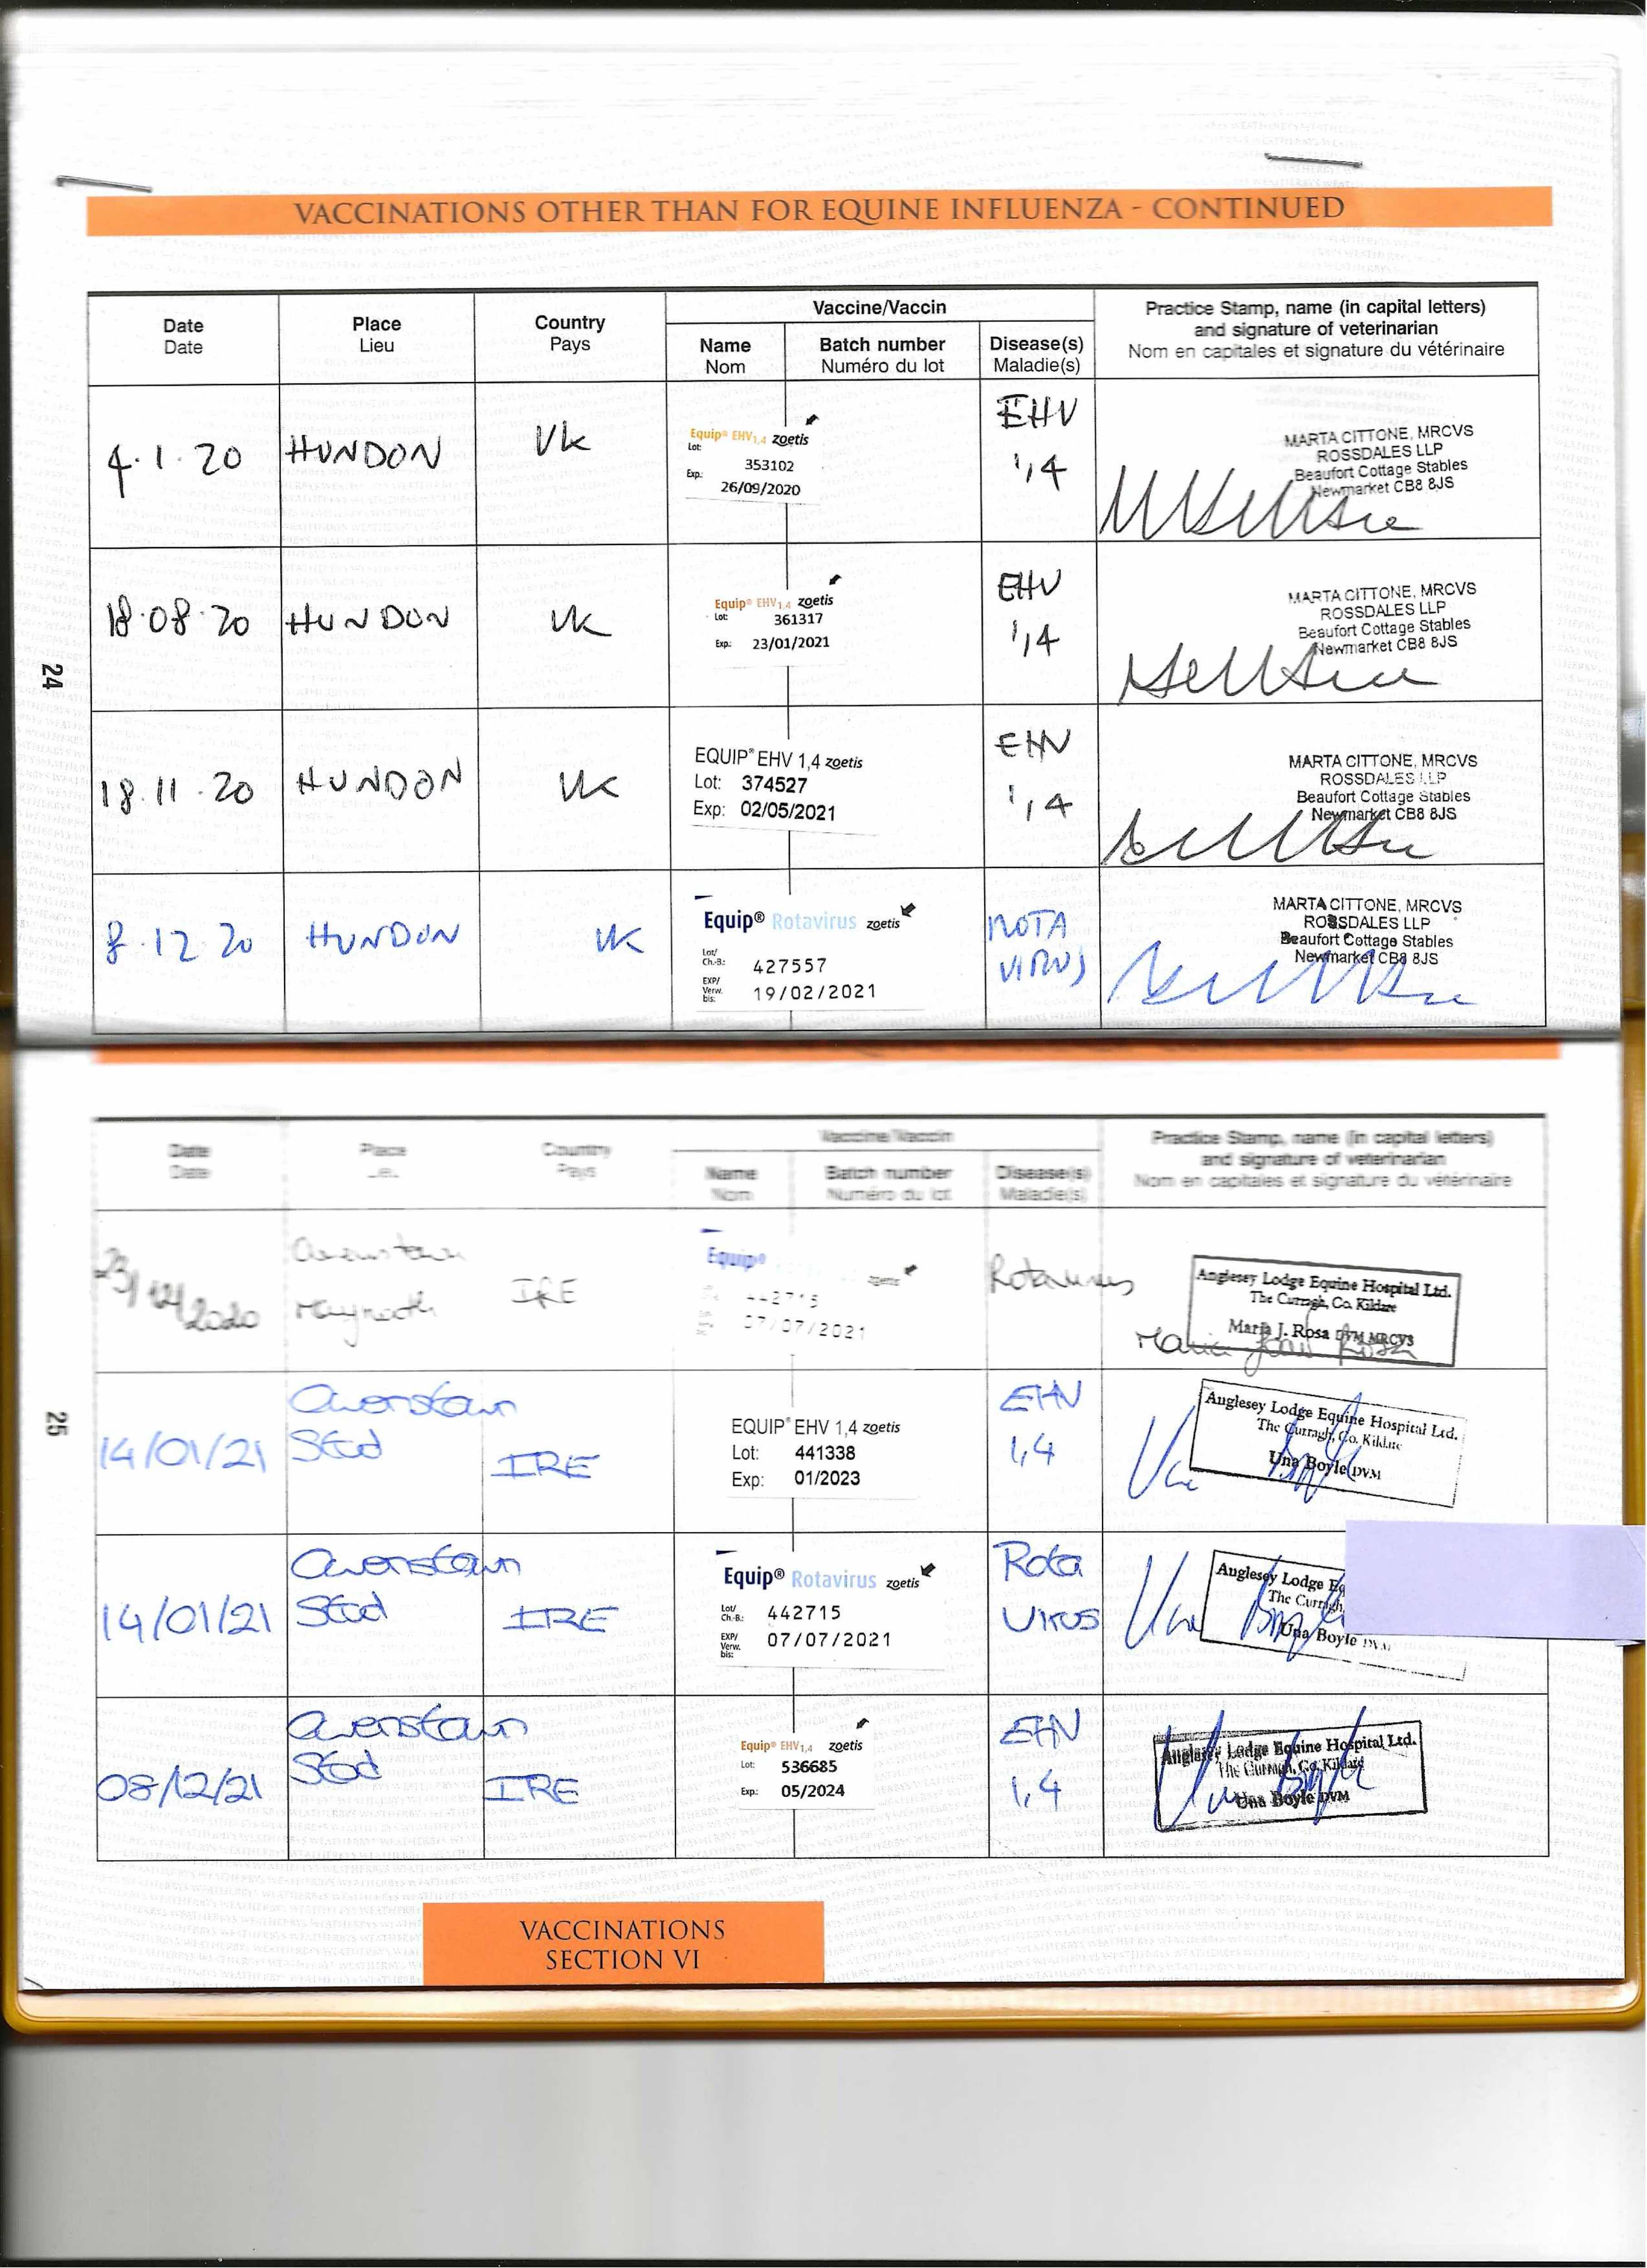 VACCINATIONS OTHER THAN FOR EQUINE INFLUENZA - CONTINUED
Date
Date
Place
Lieu
Country
Pays
Vaccine/Vaccin
Name
Nom
Batch number
Numéro du lot
Disease(s)
Maladie(s)
Practice Stamp, name (in capital letters)
and signature of veterinarian
Nom en capitales et signature du vétérinaire
4.1.20
HUNDON
UK
Equip® EHV1,4 zoetis
Lot:
353102
Exp:
26/09/2020
EHV
1,4
MARTA CITTONE, MRCVS
ROSSDALES LLP
Beaufort Cottage Stables
Newmarket CB8 8JS
18.08.20
HUNDON
UK
Equip® EHV1,4 zoetis
Lot: 361317
Exp: 23/01/2021
EHV
1,4
MARTA CITTONE, MRCVS
ROSSDALES LLP
Beaufort Cottage Stables
Newmarket CB8 8JS
24
18.11.20
HUNDON
UK
EQUIP® EHV 1,4 zoetis
Lot: 374527
Exp: 02/05/2021
EHV
1,4
MARTA CITTONE, MRCVS
ROSSDALES LLP
Beaufort Cottage Stables
Newmarket CB8 8JS
8.12.20
HUNDON
UK
Equip® Rotavirus zoetis
Lot/
Ch.-B.: 427557
EXP/
Verw.
bis: 19/02/2021
ROTA
VIRUS
MARTA CITTONE, MRCVS
ROSSDALES LLP
Beaufort Cottage Stables
Newmarket CB8 8JS
Date
Date
Place
Lieu
Country
Pays
Vaccine/Vaccin
Name
Nom
Batch number
Numéro du lot
Disease(s)
Maladie(s)
Practice Stamp, name (in capital letters)
and signature of veterinarian
Nom en capitales et signature du vétérinaire
23/12/2020
Owenstown
Maynooth
IRE
Equip®
zoetis
442715
07/07/2021
Rotavirus
Anglesey Lodge Equine Hospital Ltd.
The Curragh, Co. Kildare
Maria J. Rosa DVM MRCVS
25
14/01/21
Owenstown
Stud
IRE
EQUIP® EHV 1,4 zoetis
Lot: 441338
Exp: 01/2023
EHV
1,4
Anglesey Lodge Equine Hospital Ltd.
The Curragh, Co. Kildare
Una Boyle DVM
14/01/21
Owenstown
Stud
IRE
Equip® Rotavirus zoetis
Lot/
Ch.-B.: 442715
EXP/
Verw.
bis: 07/07/2021
Rota
Virus
Anglesey Lodge Eq
The Curragh,
Una Boyle DVM
08/12/21
Owenstown
Stud
IRE
Equip® EHV1,4 zoetis
Lot: 536685
Exp: 05/2024
EHV
1,4
Anglesey Lodge Equine Hospital Ltd.
The Curragh, Co. Kildare
Una Boyle DVM
VACCINATIONS
SECTION VI